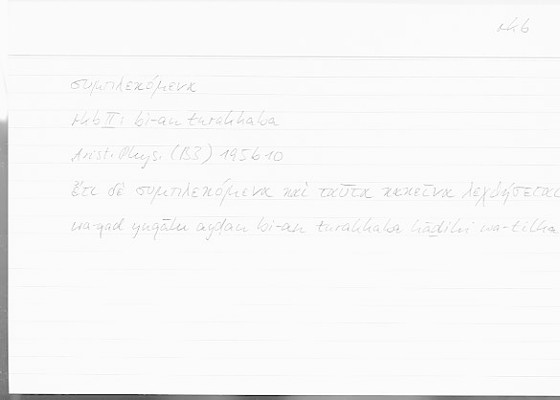 rkb
συμπλεκόμενα
rkb II: bi-an turakkaba
Arist. Phys. (B3) 195b10
Ἔτι δὲ συμπλεκόμενα καὶ ταῦτα κἀκεῖνα λεχθήσεται
wa-qad yuqālu ayḍan bi-an turakkaba hāḏihi wa-tilka